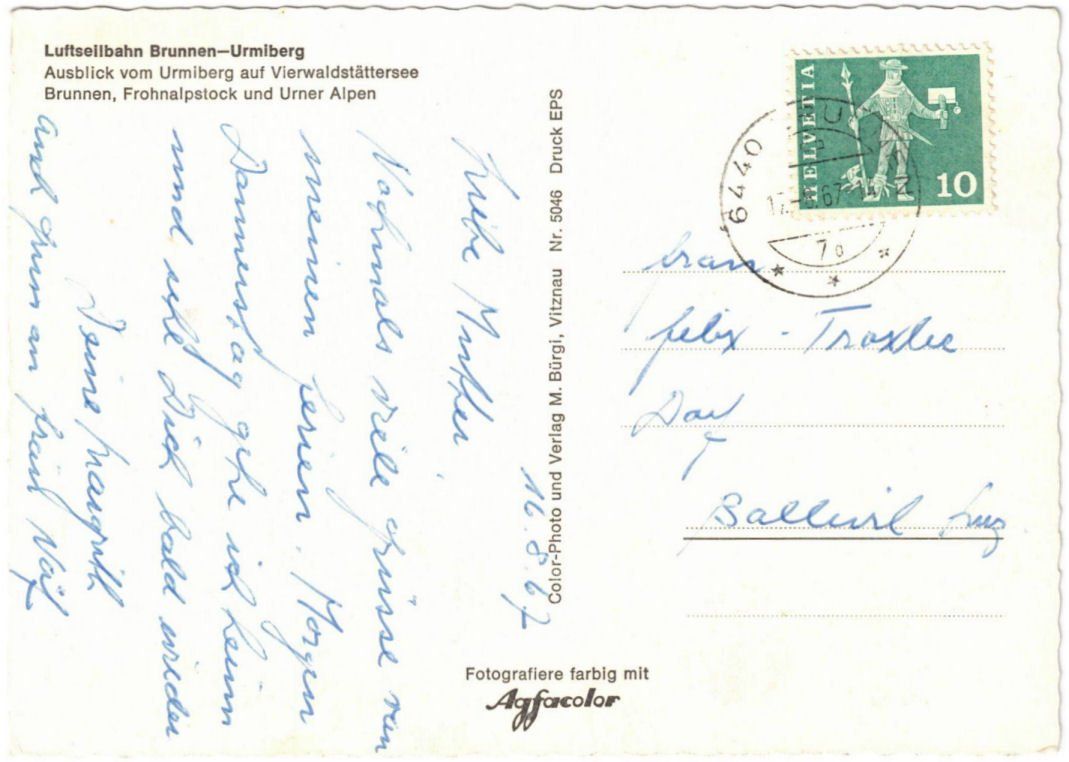 Luftseilbahn Brunnen—Urmiberg
Ausblick vom Urmiberg auf Vierwaldstättersee
Brunnen, Frohnalpstock und Urner Alpen
16. 8. 67
Liebe Mutter.
Nochmals viele Grüsse von
meinen Ferien. Morgen
Donnerstag gehe ich heim
und seht Dich bald wieder
Deine Margrith
und Gruss an Frau
Color-Photo und Verlag M. Bürgi, Vitznau Nr. 5046 Druck EPS
Fotografiere farbig mit
Agfacolor
HELVETIA
10
6440
67
7a
Frau
Felix - Troxler
Ballwil Luz